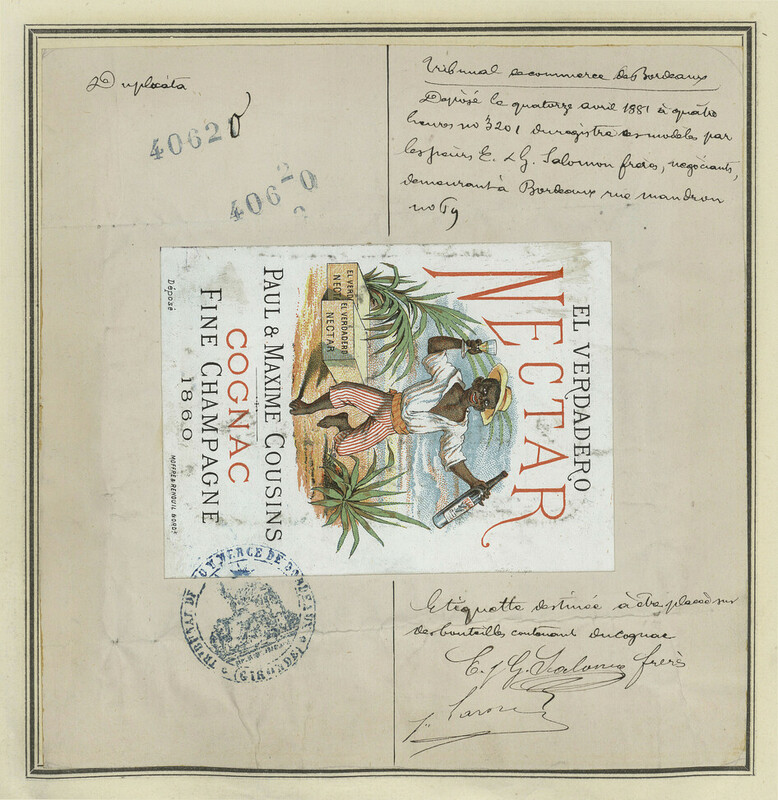 Duplicata
40620
40620
Tribunal de commerce de Bordeaux
Déposé le quatorze avril 1881 à quatre
heures no 3201 du registre des modèles par
les sieurs E. & G. Salomon frères, négociants,
demeurant à Bordeaux rue mandron
no
EL VERDADERO
NECTAR
EL VERD
NEC
EL VERDADERO
NECTAR
PAUL & MAXIME COUSINS
COGNAC
FINE CHAMPAGNE
1860
Déposé
TRIBUNAL DE COMMERCE DE BORDEAUX
(GIRONDE)
Etiquette destinée à être placée sur
des bouteilles contenant du cognac
E. & G. Salomon frères